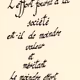 L'effort fourni à la
société
est-il de moindre
valeur
et
méritant
Le moindre effort